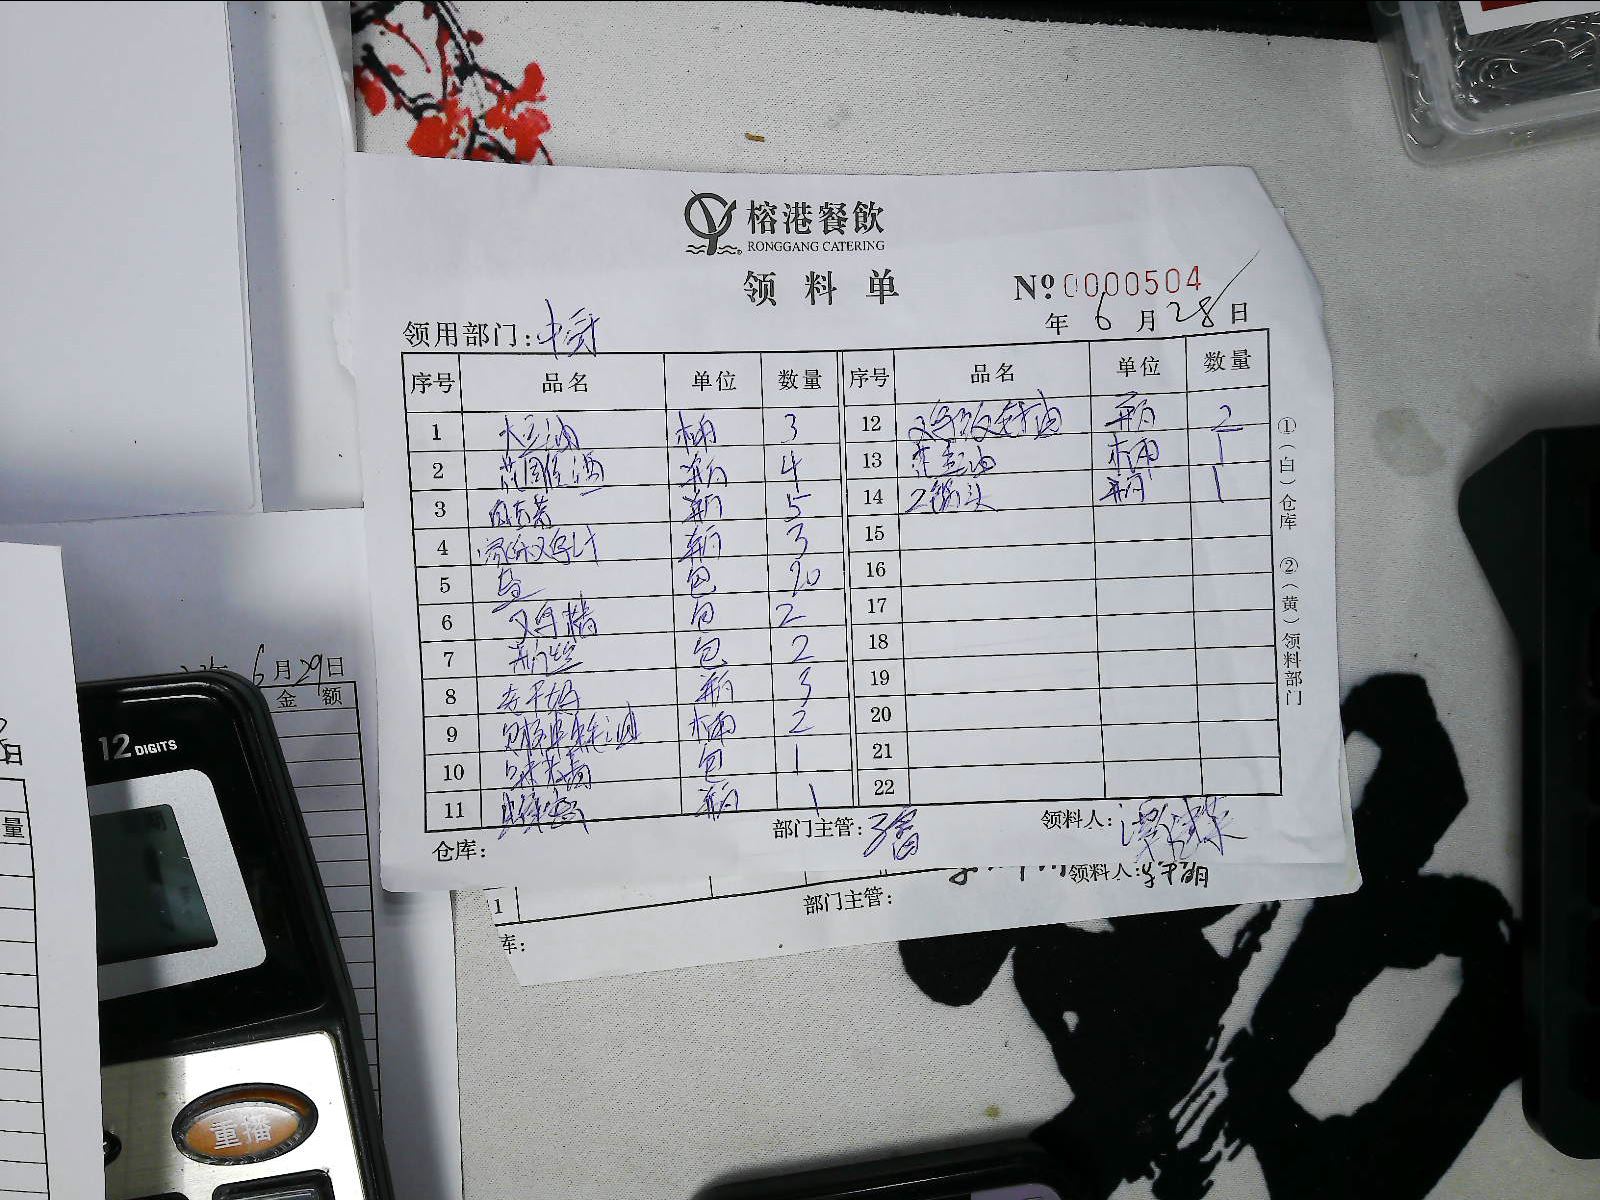 榕港餐飲
RONGGANG CATERING
领料单
№ 0000504
年 6 月 28 日
领用部门: 中厨
序号 品名 单位 数量 序号 品名 单位 数量
1 大豆油 桶 3 12 鸡饭老抽 瓶 2
2 花雕酒 瓶 4 13 大豆油 桶 1
3 瓶 5 14 2锅头 瓶 1
4 家乐鸡汁 瓶 3 15
5 盐 包 20 16
6 鸡精 包 2 17
7 包 2 18
8 老干妈 瓶 3 19
9 桶 2 20
10 味精 包 1 21
11 瓶 1 22
仓库: 部门主管: 领料人:
①(白)仓库 ②(黄)领料部门
1
部门主管: 领料人:
库:
6月29日
金 额
日
量
12 DIGITS
重播